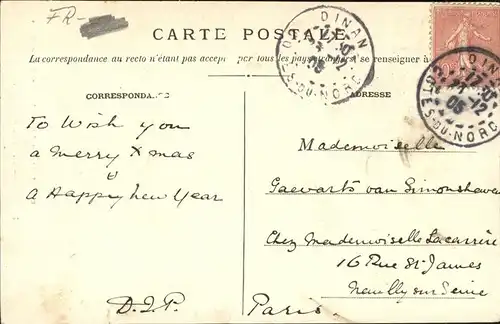 FR-
CARTE POSTALE
La correspondance au recto n'étant pas accep par tous les pays étrangers se renseigner à
CORRESPONDA
ADRESSE
DINAN
CÔTES-DU-NORD
DINAN
17 30
21-12
05
CÔTES-DU-NORD
To Wish you
a Merry Xmas
&
a Happy New Year
D.I.P.
Mademoiselle
Gaevarts van Simonshaven
Chez Mademoiselle Lacarrère
16 Rue St James
Neuilly sur Seine
Paris